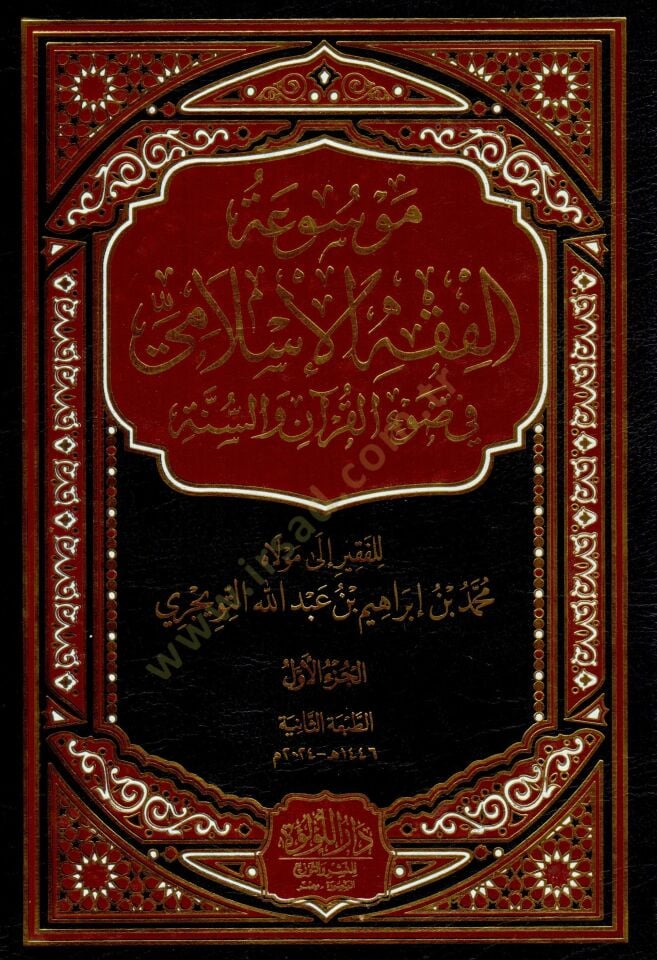 مَوْسُوعَةُ
الفِقْهِ الإِسْلَامِيِّ
فِي ضَوْءِ القُرْآنِ وَالسُّنَّةِ
لِلفَقِيرِ إِلَى مَوْلَاهُ
مُحَمَّدُ بْنُ إِبْرَاهِيمَ بْنِ عَبْدِ اللهِ التُّوَيْجِرِي
الجُزْءُ الأَوَّلُ
الطَّبْعَةُ الثَّانِيَة
١٤٤٦هـ - ٢٠٢٤م
دَارُ اللُّؤْلُؤَة
للنشر والتوزيع
www.irsad.com.tr